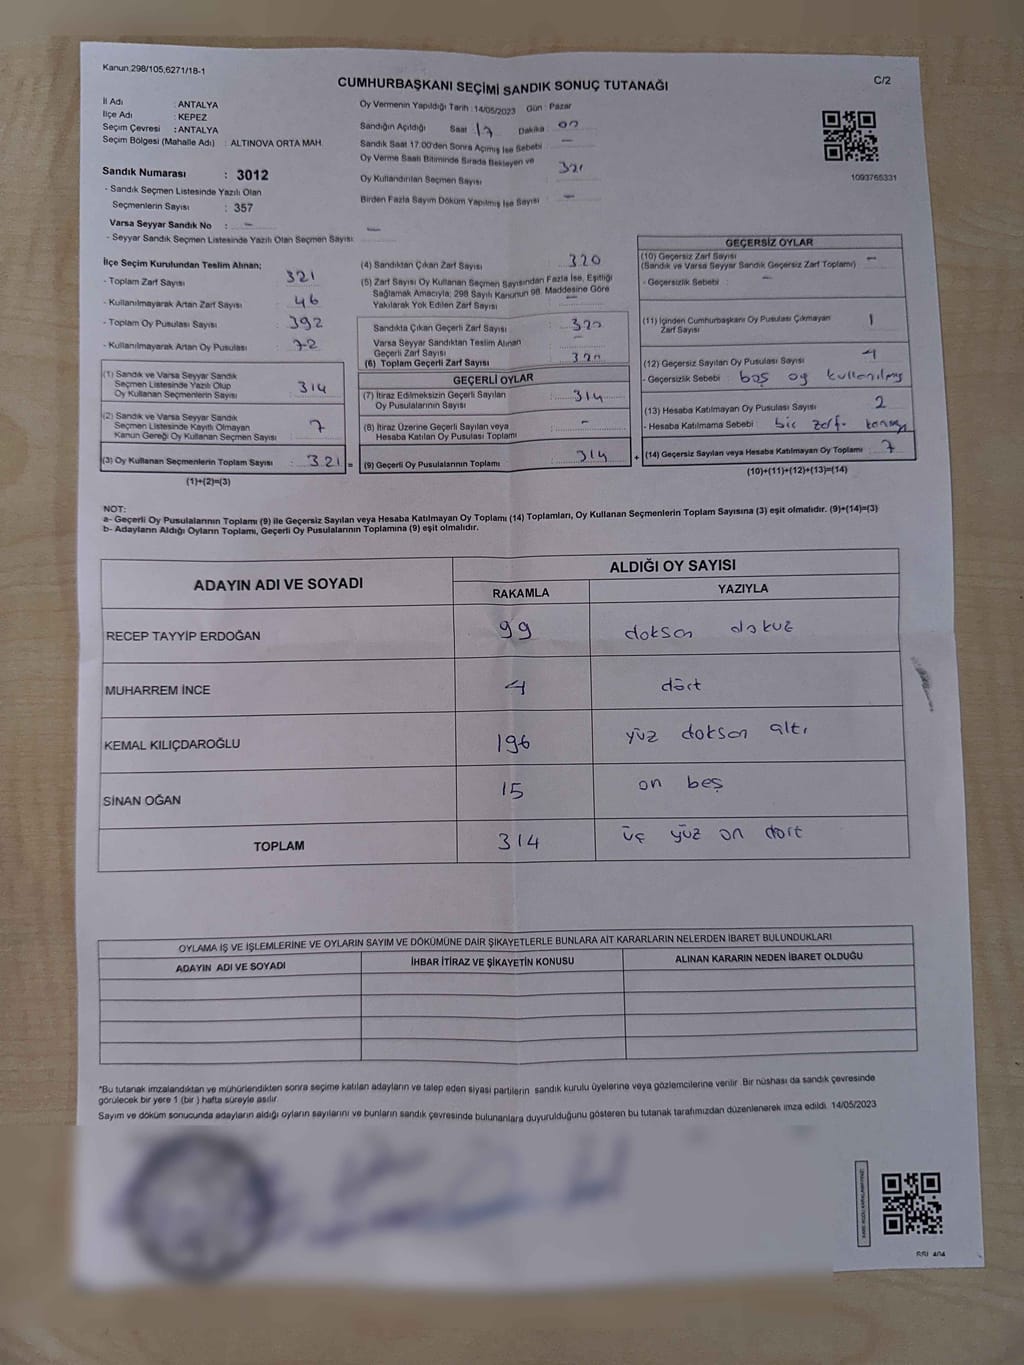 Kanun,298/105,6271/18-1
C/2
CUMHURBAŞKANI SEÇİMİ SANDIK SONUÇ TUTANAĞI
İl Adı : ANTALYA
İlçe Adı : KEPEZ
Seçim Çevresi : ANTALYA
Seçim Bölgesi (Mahalle Adı) : ALTINOVA ORTA MAH.
Sandık Numarası : 3012
- Sandık Seçmen Listesinde Yazılı Olan
Seçmenlerin Sayısı : 357
Varsa Seyyar Sandık No : -
- Seyyar Sandık Seçmen Listesinde Yazılı Olan Seçmen Sayısı: -
Oy Vermenin Yapıldığı Tarih : 14/05/2023 Gün : Pazar
Sandığın Açıldığı Saat 17 Dakika 00
Sandık Saat 17.00'den Sonra Açımış İse Sebebi : -
Oy Verme Saati Bitiminde Sırada Bekleyen ve
Oy Kullandırılan Seçmen Sayısı : 321
Birden Fazla Sayım Döküm Yapılmış İse Sayısı : -
1093765331
İlçe Seçim Kurulundan Teslim Alınan;
- Toplam Zarf Sayısı : 321
- Kullanılmayarak Artan Zarf Sayısı : 46
- Toplam Oy Pusulası Sayısı : 392
- Kullanılmayarak Artan Oy Pusulası : 72
(1) Sandık ve Varsa Seyyar Sandık
Seçmen Listesinde Yazılı Olup
Oy Kullanan Seçmenlerin Sayısı : 314
(2) Sandık ve Varsa Seyyar Sandık
Seçmen Listesinde Kayıtlı Olmayan
Kanun Gereği Oy Kullanan Seçmen Sayısı : 7
(3) Oy Kullanan Seçmenlerin Toplam Sayısı : 321 =
(1)+(2)=(3)
(4) Sandıktan Çıkan Zarf Sayısı : 320
(5) Zarf Sayısı Oy Kullanan Seçmen Sayısından Fazla İse, Eşitliği
Sağlamak Amacıyla; 298 Sayılı Kanunun 98. Maddesine Göre
Yakılarak Yok Edilen Zarf Sayısı : -
Sandıkta Çıkan Geçerli Zarf Sayısı : 320
Varsa Seyyar Sandıktan Teslim Alınan
Geçerli Zarf Sayısı : -
(6) Toplam Geçerli Zarf Sayısı : 320
GEÇERLİ OYLAR
(7) İtiraz Edilmeksizin Geçerli Sayılan
Oy Pusulalarının Sayısı : 314
(8) İtiraz Üzerine Geçerli Sayılan veya
Hesaba Katılan Oy Pusulası Toplamı : -
(9) Geçerli Oy Pusulalarının Toplamı : 314 +
GEÇERSİZ OYLAR
(10) Geçersiz Zarf Sayısı
(Sandık ve Varsa Seyyar Sandık Geçersiz Zarf Toplamı) : -
- Geçersizlik Sebebi : -
(11) İçinden Cumhurbaşkanı Oy Pusulası Çıkmayan
Zarf Sayısı : 1
(12) Geçersiz Sayılan Oy Pusulası Sayısı : 4
- Geçersizlik Sebebi : boş oy kullanılmış
(13) Hesaba Katılmayan Oy Pusulası Sayısı : 2
- Hesaba Katılmama Sebebi : bir zarf
(14) Geçersiz Sayılan veya Hesaba Katılmayan Oy Toplamı : 7
(10)+(11)+(12)+(13)=(14)
NOT:
a- Geçerli Oy Pusulalarının Toplamı (9) ile Geçersiz Sayılan veya Hesaba Katılmayan Oy Toplamı (14) Toplamları, Oy Kullanan Seçmenlerin Toplam Sayısına (3) eşit olmalıdır. (9)+(14)=(3)
b- Adayların Aldığı Oyların Toplamı, Geçerli Oy Pusulalarının Toplamına (9) eşit olmalıdır.
ADAYIN ADI VE SOYADI
ALDIĞI OY SAYISI
RAKAMLA YAZIYLA
RECEP TAYYİP ERDOĞAN 99 doksan dokuz
MUHARREM İNCE 4 dört
KEMAL KILIÇDAROĞLU 196 yüz doksan altı
SİNAN OĞAN 15 on beş
TOPLAM 314 üç yüz on dört
OYLAMA İŞ VE İŞLEMLERİNE VE OYLARIN SAYIM VE DÖKÜMÜNE DAİR ŞİKAYETLERLE BUNLARA AİT KARARLARIN NELERDEN İBARET BULUNDUKLARI
ADAYIN ADI VE SOYADI İHBAR İTİRAZ VE ŞİKAYETİN KONUSU ALINAN KARARIN NEDEN İBARET OLDUĞU
*Bu tutanak imzalandıktan ve mühürlendikten sonra seçime katılan adayların ve talep eden siyasi partilerin sandık kurulu üyelerine veya gözlemcilerine verilir. Bir nüshası da sandık çevresinde
görülecek bir yere 1 (bir) hafta süreyle asılır.
Sayım ve döküm sonucunda adayların aldığı oyların sayılarını ve bunların sandık çevresinde bulunanlara duyurulduğunu gösteren bu tutanak tarafımızdan düzenlenerek imza edildi. 14/05/2023